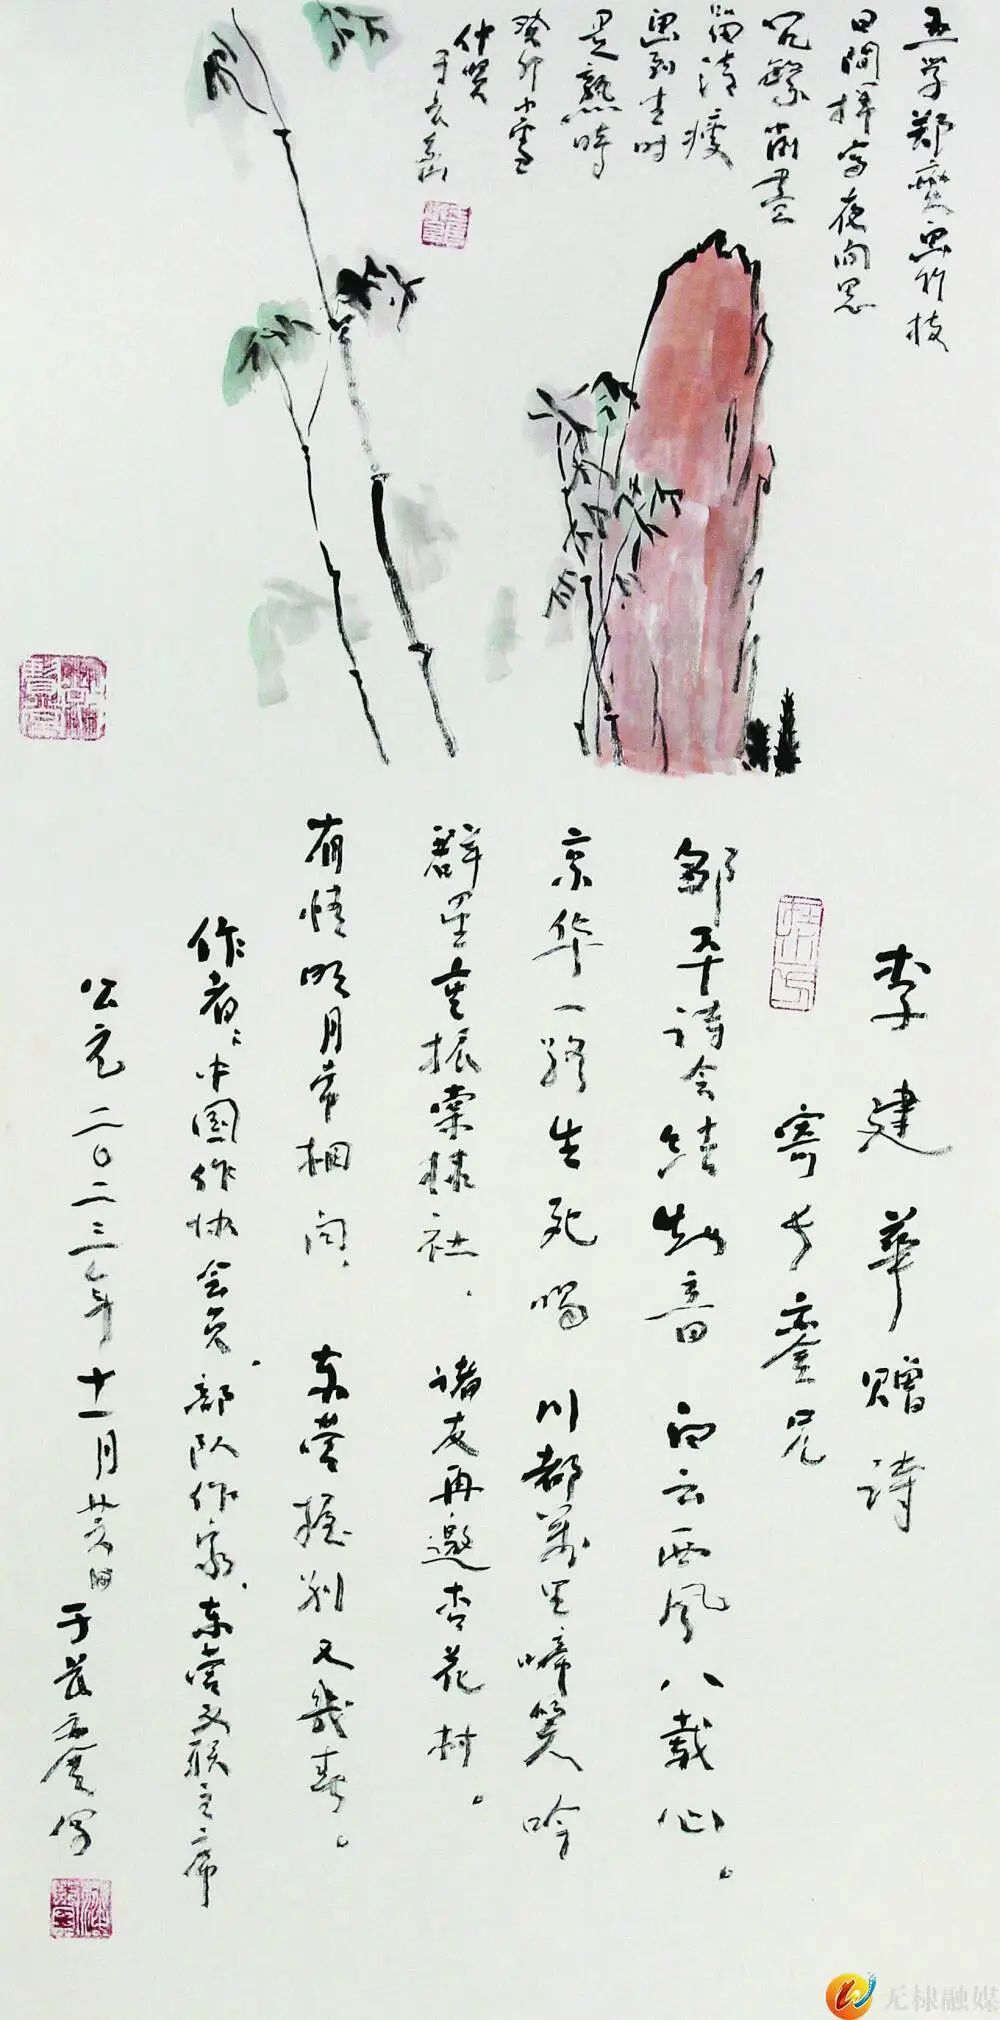 五学郑燮画竹枝
日间挥写夜间思
冗繁削盡
留清瘦
画到生时
是熟時
癸卯小雪
仲贤
李建華赠诗
寄长銮兄
邹平诗会结知音 白云西风八载心。
京华一路生死唱 川都万里啼笑吟
群星重振棠棣社,诸友再邀杏花村。
有情明月常相问,东营握别又几春。
作者:中国作协会员、部队作家、东营文联主席
公元二〇二三年十一月廿六日 于长銮写
无棣融媒